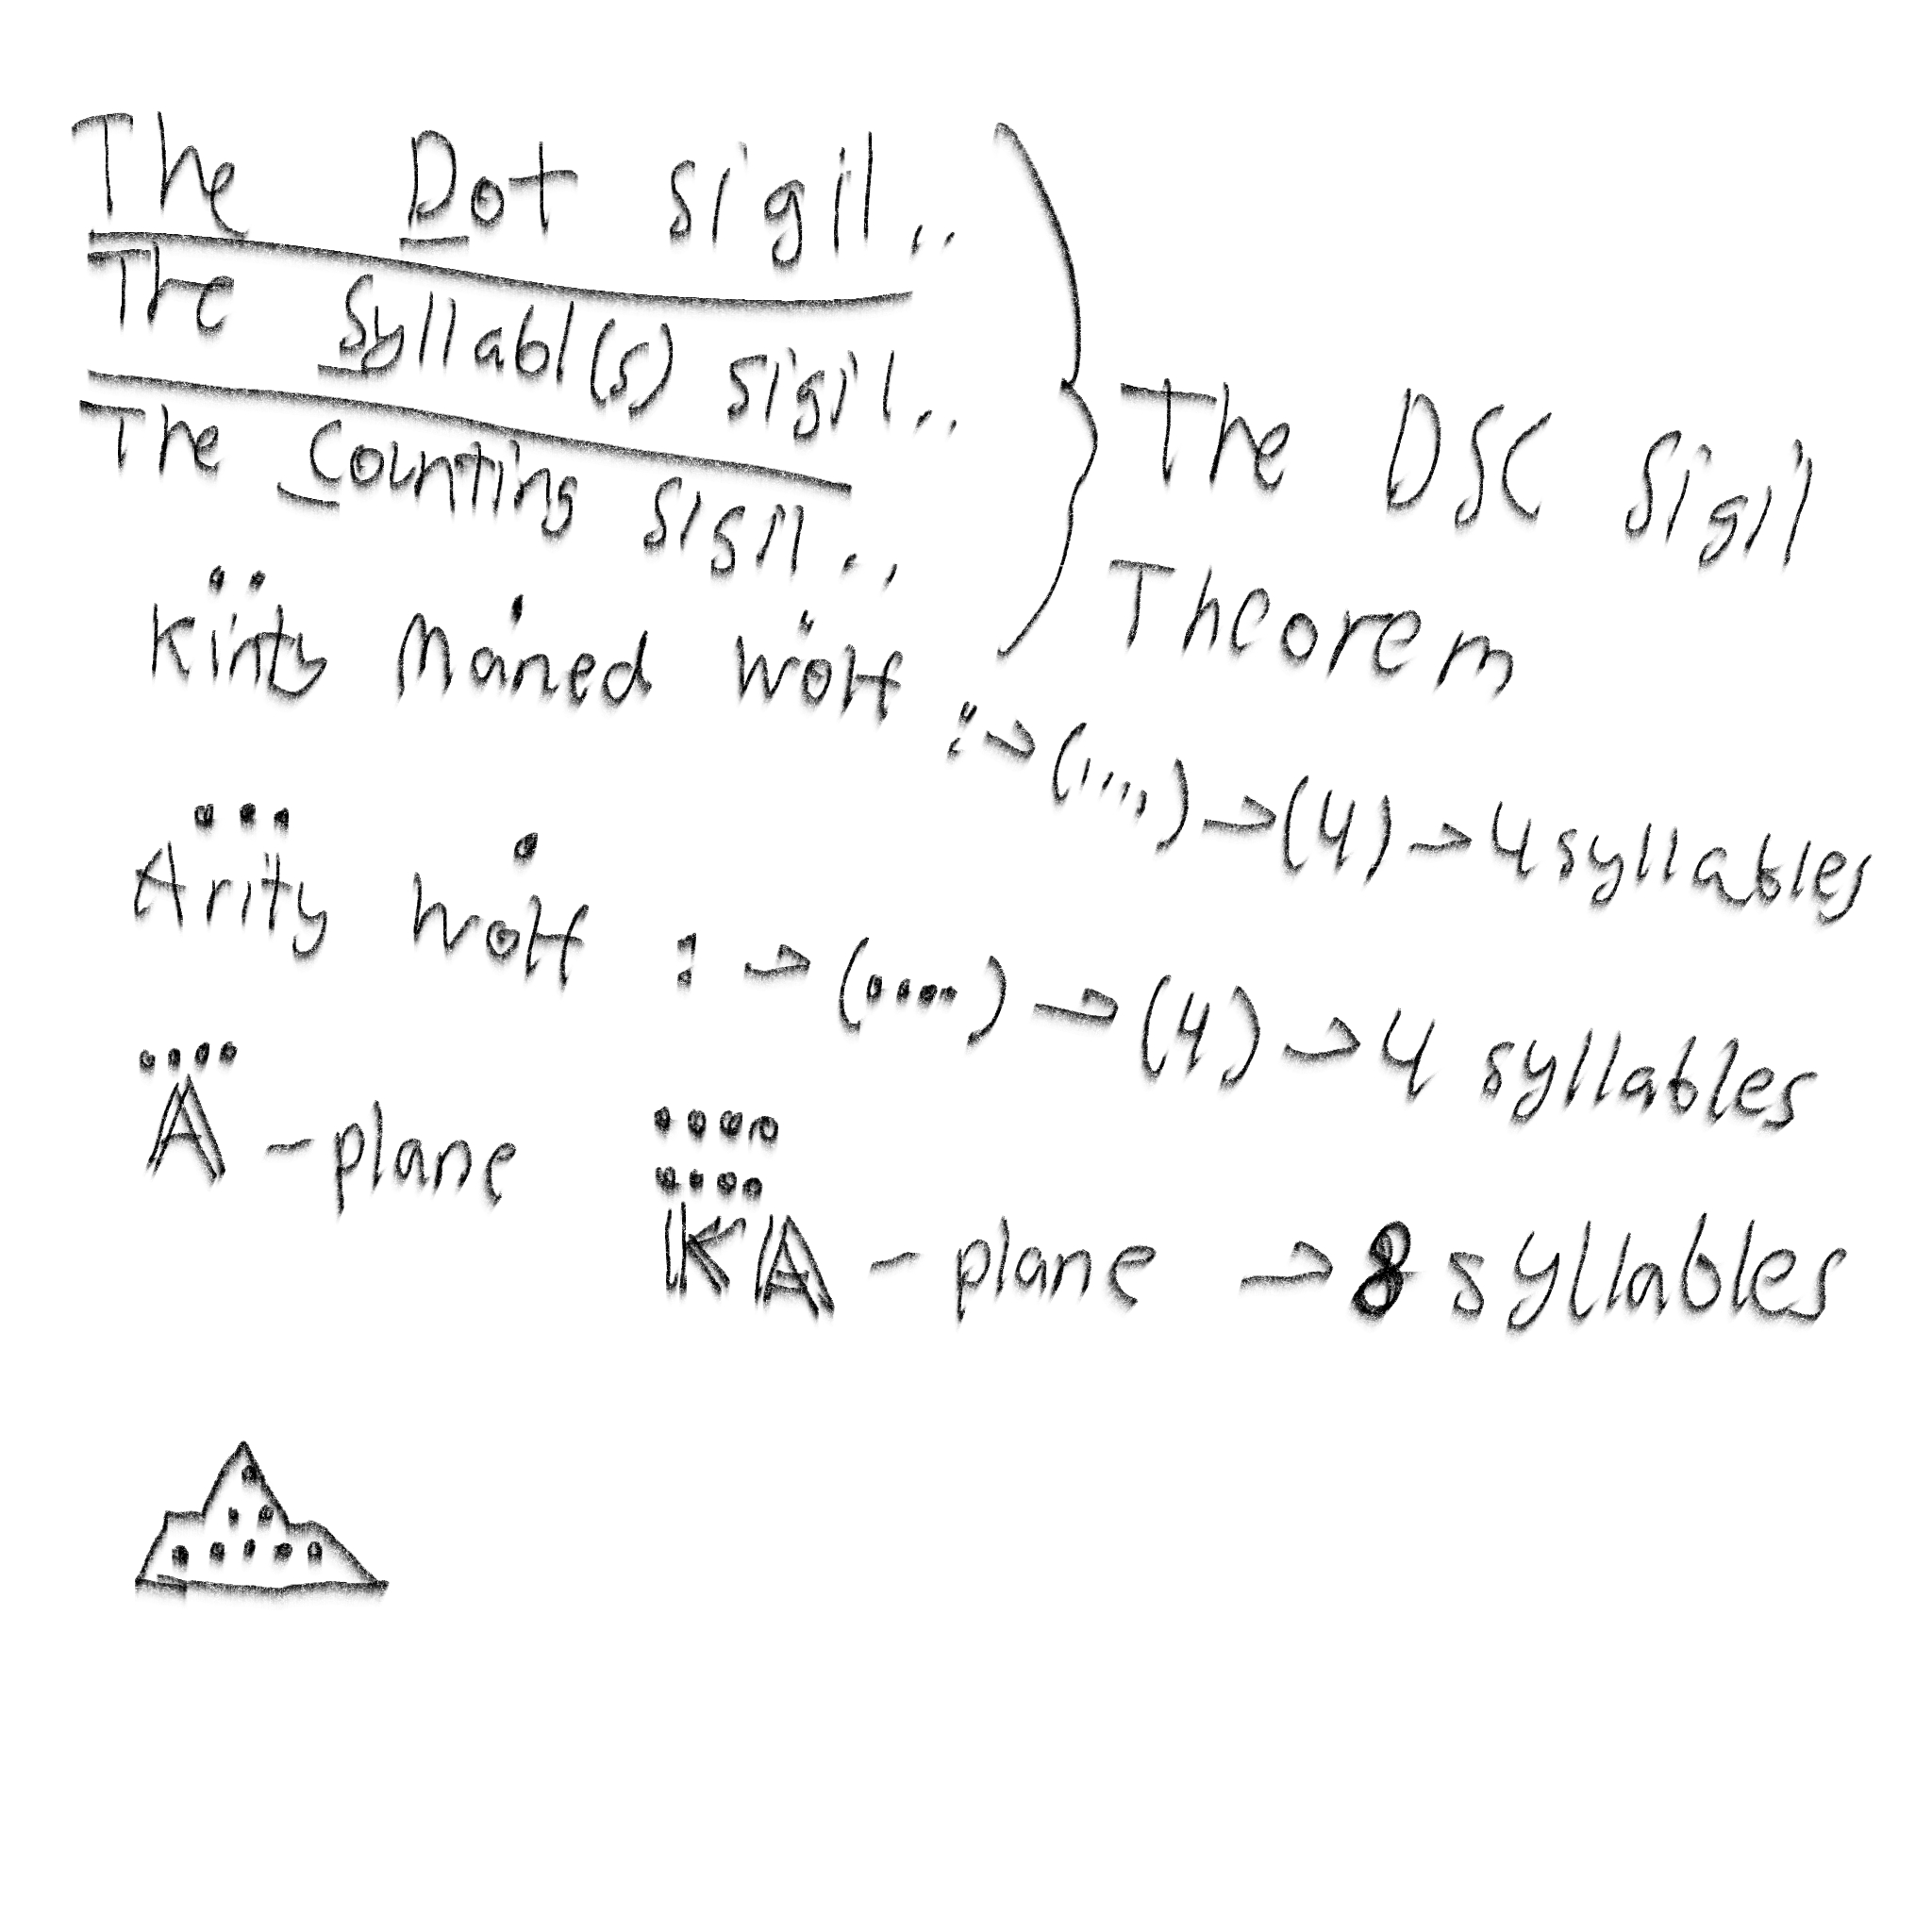 The Dot sigil..
The Syllabl(s) sigil..
The Counting sigil..
The DSC Sigil
Theorem
Kinty Maned Wolf :→(....)→(4)→4 syllables
Arity Wolf :→(....)→(4)→4 syllables
𝔸-plane
𝕂𝔸-plane →8 syllables